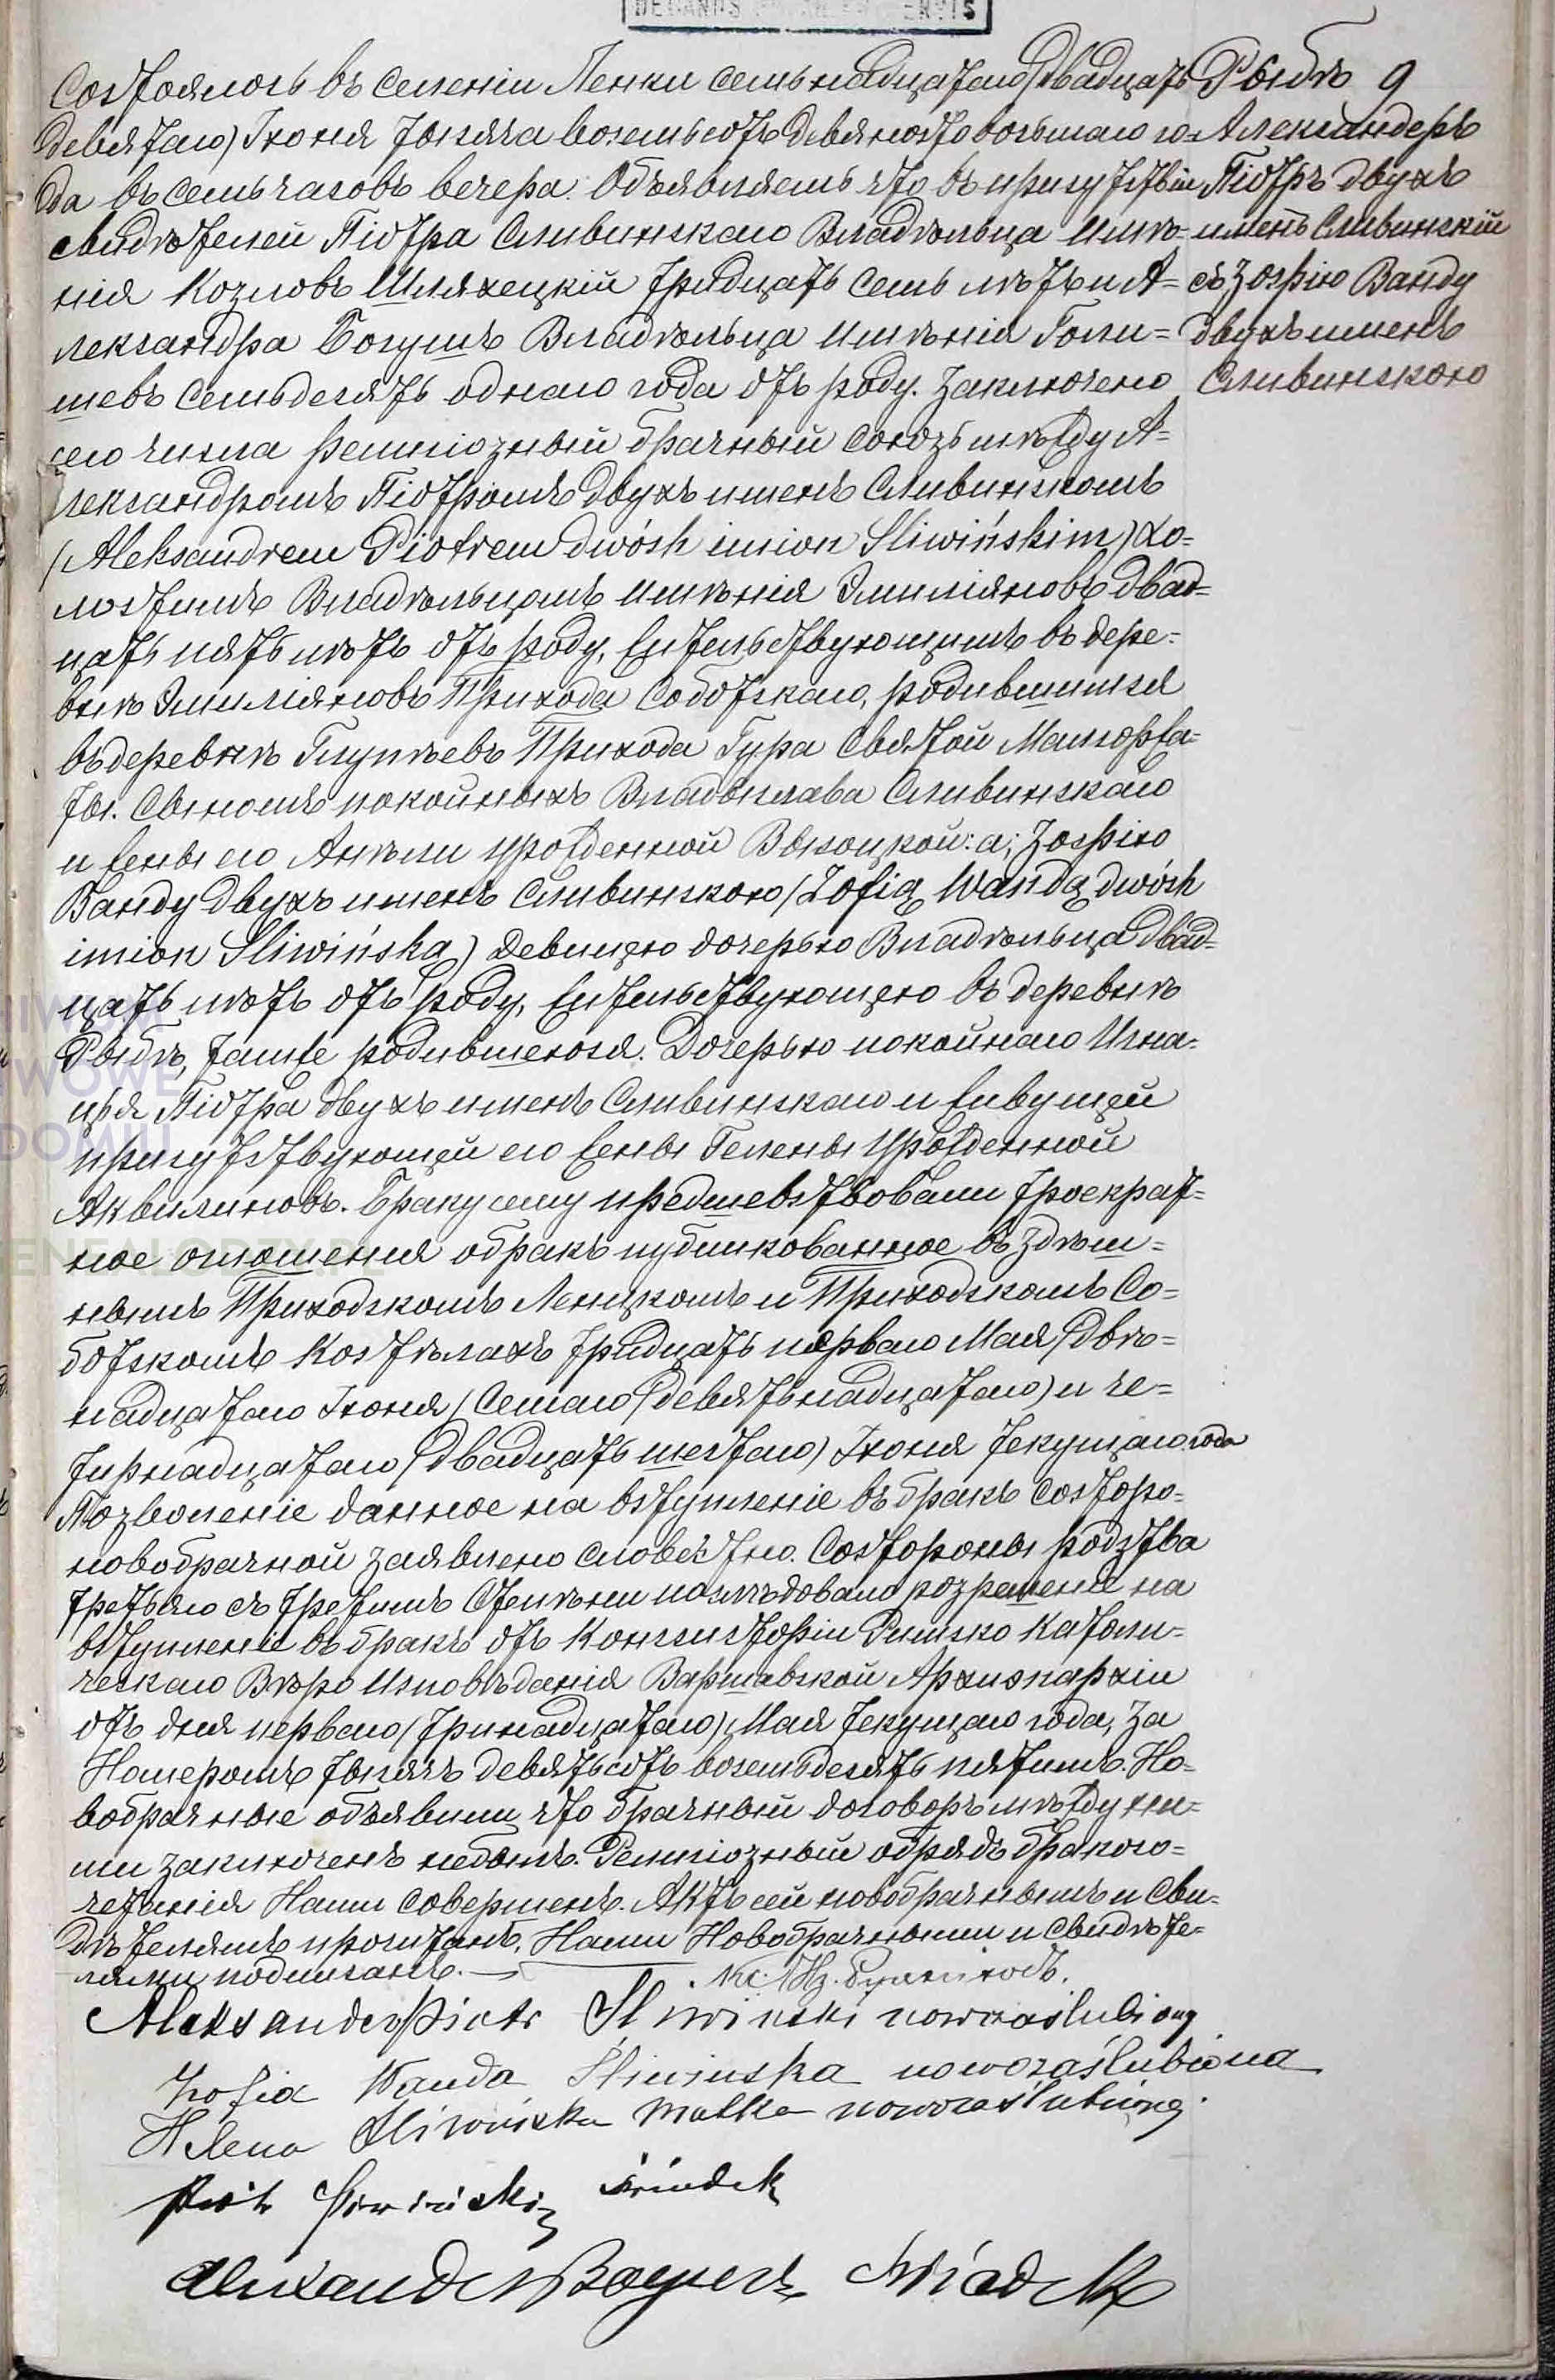 DECANUS
Состоялось въ селеніи Ленки семьнадцатаго (двадцать
девятаго) Іюня тысяча восемьсотъ девяностовосьмаго го=
да въ семь часовъ вечера. Объявляемъ что въ присутствіи
свидѣтелей Піотра Сливинскаго Владѣльца Имѣ=
нія Козловъ Шляхецкій тридцать семь лѣтъ и А=
лександра Богушъ Владѣльца Имѣнія Голи=
шевъ семьдесятъ однаго года отъ роду. Заключено
сего числа религіозный брачный союзъ мѣжду А=
лександромъ Піотромъ двухъ именъ Сливинскомъ
(Aleksandrem Piotrem dwósh imion Sliwińskim) хо=
лостимъ Владѣльцомъ Имѣнія Эмиліяновъ двад=
цать пять лѣтъ отъ роду, жительствующимъ въ дере=
внѣ Эмиліяновъ Прихода Соботскаго, родившимся
въ деревнѣ Глупѣевъ Прихода Гура Святой Малгоржа=
ты. Сыномъ покойныхъ Владыслава Сливинскаго
и жены его Анѣли урожденной Высоцкой: а; Зофію
Ванду двухъ именъ Сливинскою (Zofią Wandą dwósh
imion Sliwińska) девицею дочерью Владѣльца двад=
цать лѣтъ отъ роду, жительствующею въ деревнѣ
Рыбѣ, тамже родившеюся. Дочерью покойнаго Игна=
ція Піотра двухъ именъ Сливинскаго и живущей
присутствующей его жены Гелены Урожденной
Аквилиновъ. Браку сему предшевствовали троекрат=
ное оглошения обракѣ публикованное въ здѣш=
нымъ Приходскомъ Ленцкомъ и Приходскомъ Со=
ботскомъ Костѣлахъ тридцать первого Мая (двѣ=
надцатаго Іюня (Семаго (девятьнадцатаго) и че=
тирнадцатаго (двадцать шестаго) Іюня текущаго года
Позволеніе данное на вступленіе въ бракъ состоро=
новобрачной заявлено словестно. Состороны родства
третьяго съ третимъ Степѣни послѣдовало розрешеня на
вступленіе въ бракъ отъ Консисторіи Римско Католи=
ческаго Вѣро Исповѣданія Варшавской Архиэпархіи
отъ дня перваго (тринадцатаго) Мая текущаго года, за
Номеромъ тысячъ девятьсотъ восемьдесятъ пятимъ. Но=
вобрачные объявили что брачный договоръ мѣжду ни=
ми заключенъ небылъ. Религіозный обрядъ бракосо=
четанія Нами совершенъ. Актъ сей новобрачнымъ и сви=
дѣтелямъ прочитанъ, Нами Новобрачными и свидѣте=
лями подписанъ.
Aleksander Piotr Sliwinski nowozaślubiony
Zofia Wanda Śliwinska nowozaślubiona
Helena Sliwińska matka nowozaślubionej
Piotr Sliwiński świadek
Alexander Bogusz świadek
Рыбѣ 9
Александеръ
Піотръ двухъ
именъ Сливинскій
съ Зофію Ванду
двухъ именъ
Сливинскою